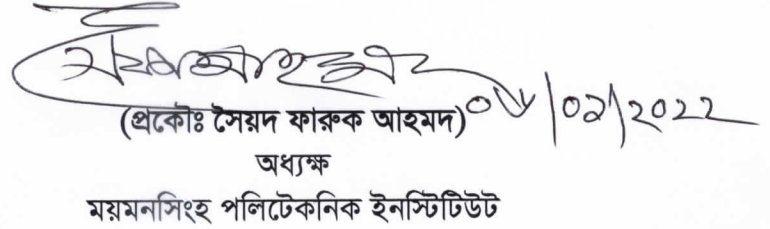 (প্রকৌঃ সৈয়দ ফারুক আহমদ)
অধ্যক্ষ
ময়মনসিংহ পলিটেকনিক ইনস্টিটিউট